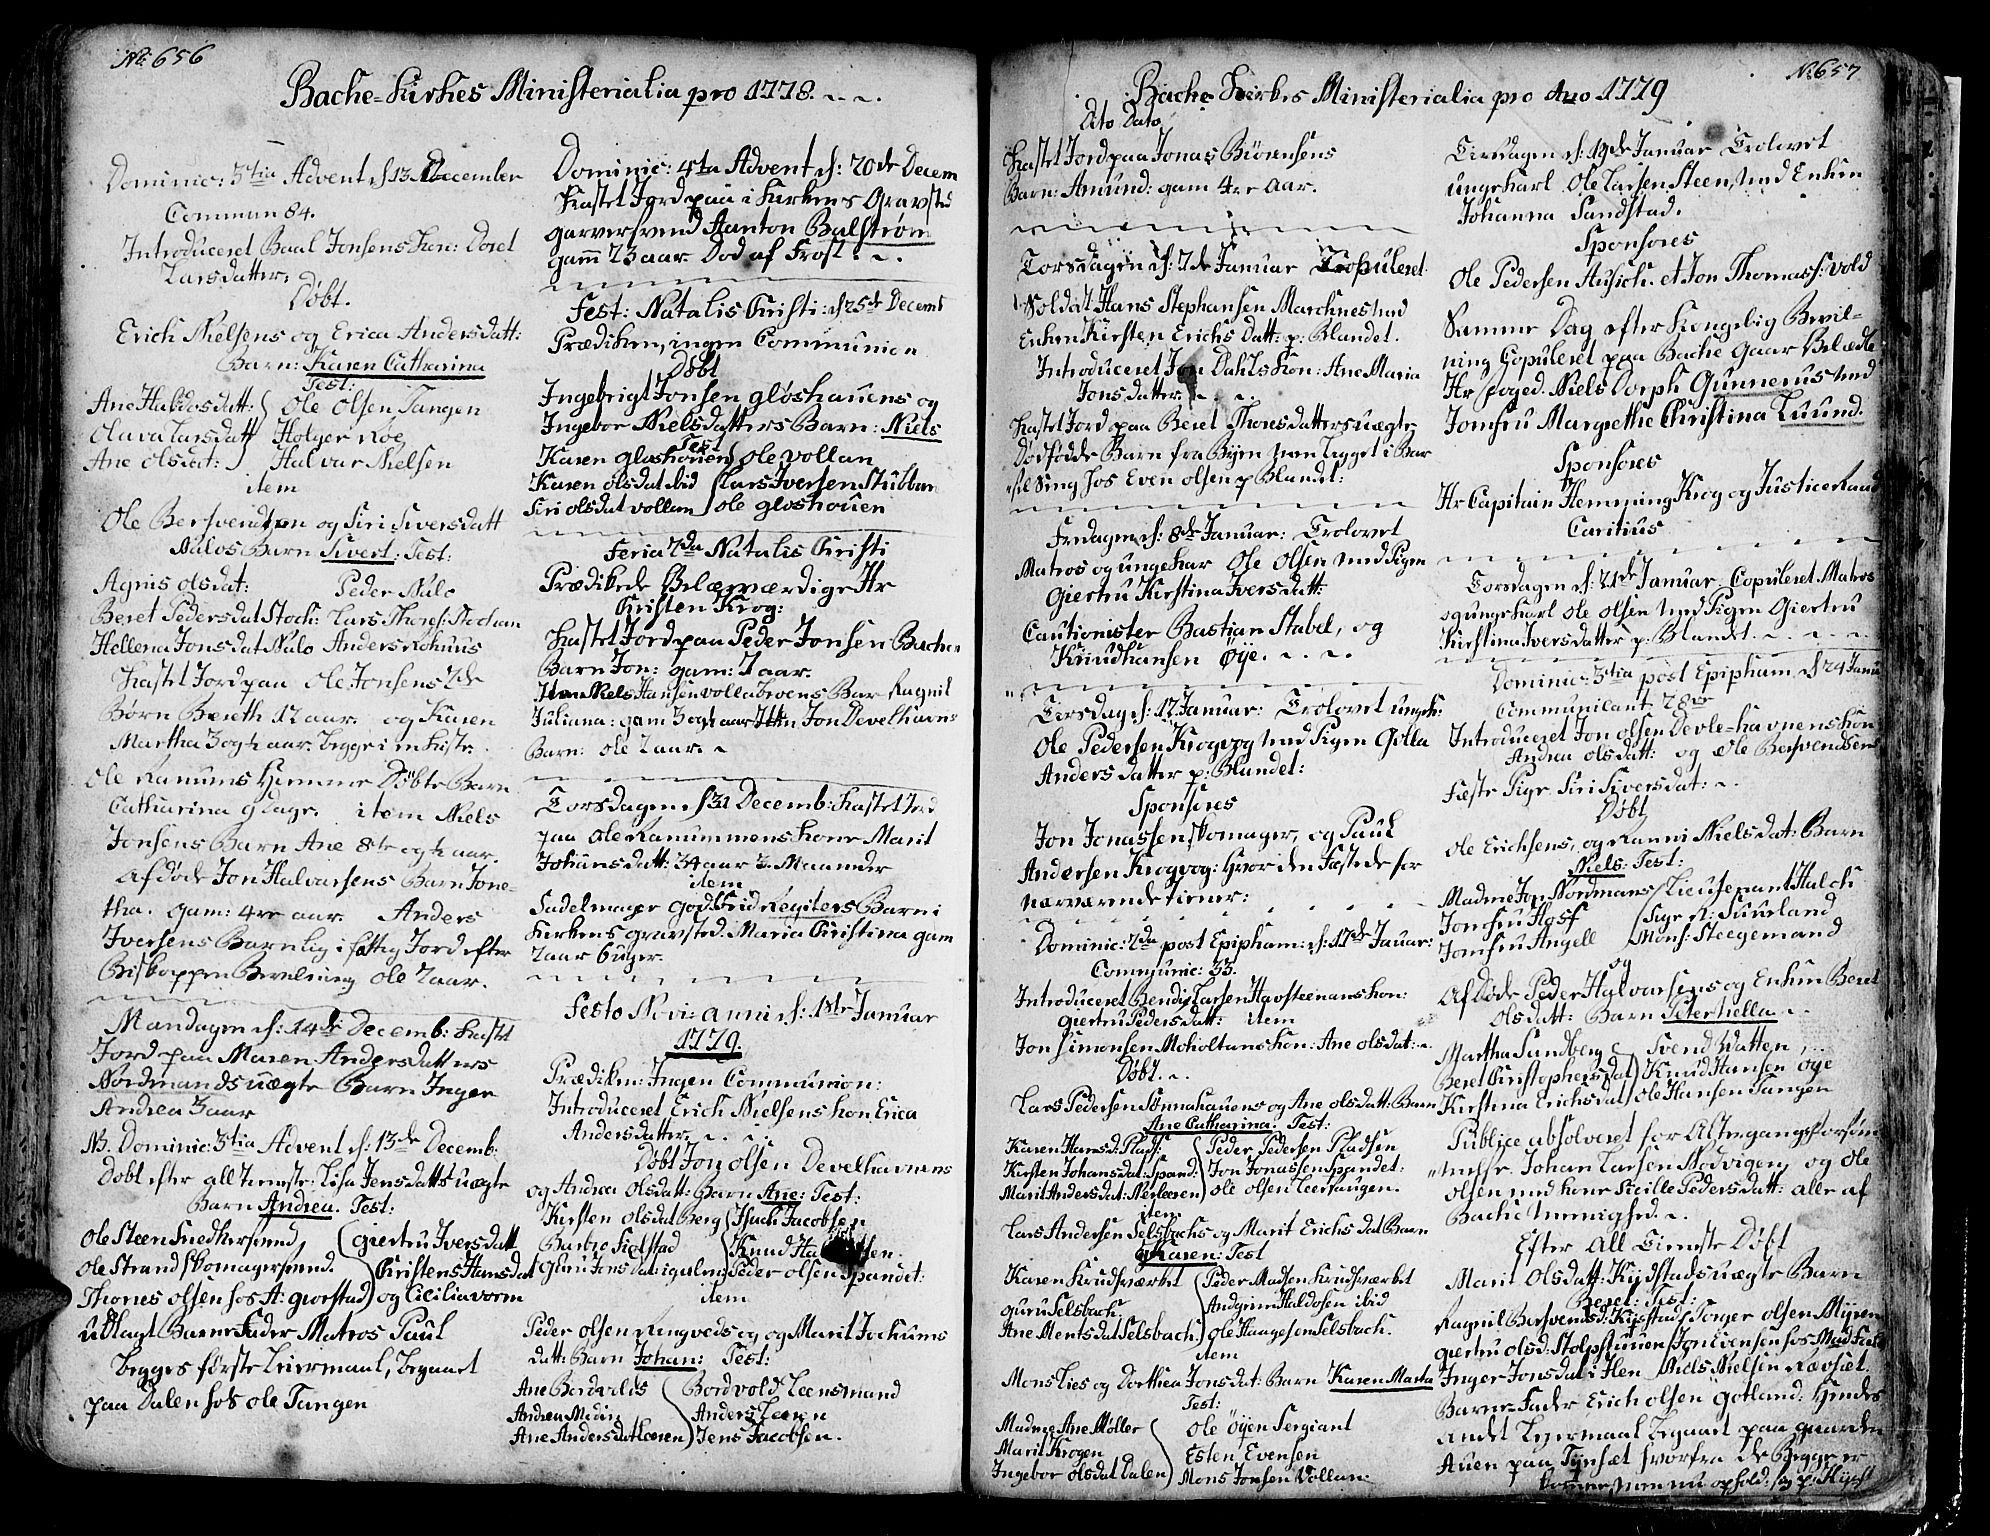 No: 656
Bache-Kirkes Ministerialia pro 1778.
Dominic: 3tia Advent d: 13 December
Commun 84.
Introduceret Baal Jonsens Kon: Doret
Larsdatter.
Døbt.
Erich Nielsens og Erica Andersdatt:
Barn: Karen Catharina
Test:
Ane Haldosdatt: Ole Olsen Tangen
Oluva Larsdatt Holger Røe
Ane olsdat: Halvar Nielsen
item
Ole Bersvendsen og Siri Siversdatt
Aalos Barn Sivert: Test:
Agnis olsdat: Peder Aalo
Beret Pedersdat Stoch: Lars
Hellena Jonsdat Aalo Anders
Kastet Jord paa Ole Jonsens 2de
Børn Bereth 12 aar. og Karen
Martha 3 og ½ aar. begge i en Kiste.
Ole Ranums Hiemme Døbte Barn
Catharina 9 dage. item Niels
Jonsens Barn Ane 8te og ½ aar.
Afdøde Jon Halvarsens Barn Jone-
tha. gam: 4re aar. Anders
Iversens Barn lig i fattig Jord efter
Biskoppen Bevilning Ole 2 aar.
Mandagen d: 14de Decemb: Kastet
Jord paa Maren Andersdatters
Nordmands uægte Barn Inger
Andrea 3 aar
NB. Dominic: 3tia Advent d: 13de Decemb:
Døbt efter all tieneste: Lisa Jensdatts uægte
Barn Andrea. Test:
Ole Steen Snedkersvend, Giertru Iversdatt
Ole Strand Skomagersvend. Kirsten Hansdat
Thones olsen hos H: Giørstad og Cicilia vorm
Udlagt Barne Fader Matros Paul
begges første Leiermaal, begaaet
paa Dalen hos Ole Tangen
Dominic: 4ta Advent d: 20de Decem
Kastet Jord paa i Kirkens Gravsted
Garversvend Hanton Balstrøm
gam 23 aar Død af Frost.
Fest: Natalis Christi: d 25de Decemb
Prædiken, ingen Communion
Døbt
Ingebrigt Jonsen gløshauens og
Ingebor Nielsdatters Barn: Niels
Test
Karen gløshouen Ole vollan
Karen olsdat ibid Lars Iversen Stubban
Siri olsdat vollan ole gløshouen
Feria 2da Natalis Christi
Prædikede Velærværdige Hr
Kristen Krog:
Kastet Jord paa Peder Jonsen Bachen
Barn Jon: gam: 2 aar.
Item Niels Hansen vollabevens Bar Ragnil
Juliana: gam 3 og ½ aar Item Jon Develhavns
Barn: ole 2 aar.
Torsdagen d 31 Decemb: Kastet Jord
paa Ole Ranummens kone Marit
Johansdatt: 34 aar 3 Maaneder
item
Sadelmager Godfrid Regiters Barn i
Kirkens gravsted. Maria Christina gam
2 aar 6 uger.
Festo Novi: anni d: 1ste Januar
1779.
Prædiken: Ingen Communion:
Introduceret Erich Nielsens kon Erica
Andersdatter.
Døbt Jon olsen Develhavnens
og Andrea Olsdatt: Barn Ane: Test:
Kirsten olsdat Berg Isach Jacobsen
Barbro Fiolstad Knud Ha sen.
Guru Jonsdat: Peder olsen Spandet:
item
Peder olsen Ringveds og Marit Jochums
datt: Barn Johan: Test:
Ane Bordvolds Bordvold Leensmand
Andrea Anders Leeren
Ane Andersdat Leeren Jens Jacobsen.
No 657
Bache Kirkes Ministerialia pro Ano 1779
Dto Dato
Kastet Jord paa Jonas Biørnsens
Barn: Amund: gam 4re aar.
Torsdagen d: 7de Januar Copuleret
Soldat Hans Stephansen Marchnes med
Enken Kirsten Erichs datt: p: Blandet.
Introduceret Jon Dahls Kon: Ane Maria
Jonsdatter.
Kastet Jord paa Beret Thoresdatters uægte
Dødfødde Barn fra Byen hven Ligget i Bar
sel Seng hos Even olsen p Blandet:
Fredagen d: 8de Januar: Trolovet
Matros og ungekar Ole Olsen med Pigen
Giertru Kirstina Iversdatt:
Cautionister Bastian Stabel, og
Knudhansen Øye.
Tirsdag d: 12 Januar: Trolovet ungek:
Ole Pedersen Krogvog med Pigen Golla
Andersdatter p: Blandet:
Sponsores
Jon Jonassen skomager, og Paul
Andersen Krogvog: Hvor den Fæstede for
nærværende tiener:
Dominic: 2da post Epipham: d: 17de Januar:
Commuunic: 33.
Introduceret Bendix Larsen Havsteenans kon:
Giertru Pedersdatt: item
Jon Simonsen Moholtans kon: Ane olsdat:
Døbt.
Lars Pedersen Sønnahauens og Ane olsdatt: Barn
Ane Catharina: Test:
Karen Hansd: Pladß: Peder Pedersen Pladsen
Kirsten Johansdat: Spand: Jon Jonassen Spandet:
Marit Andersdat: Nerleeren Ole olsen Leerhaugen.
item
Lars Andersen Selsbachs og Marit Erichsdat Barn
Karen: Test
Karen Krudhværket Peder Madsen Krudhværket
guru Selsbach. Andgrim Haldosen ibid
Ane Mentsdat Selsbach. Ole Haagesen Selsbach.
item
Mons Lies og Dorthea Jonsdat: Barn Karen Marta
Test:
Madme Ane Møller Ole Øyen Sergiant
Marit Krogen Esten Evensen
Ingebor olsdat Dalen Mons Jonsen Vollan:
Tirsdagen d: 19de Januar Trolovet
ungekarl Ole Larsen Steen, med Enken
Johanna Sandstad.
Sponsores
Ole Pedersen Husich. et Jon Thomass: vold
Samme Dag efter Kongelig Bevil-
ning Copuleret paa Bache Gaar Velædle
Hr foged. Niels Dorph Gunnerus med
Jomfru Margrethe Christina Luund.
Sponsores
Hr Capitain Hemming Krog og Justice Raad
Caritius
Torsdagen d: 21de Januar: Copuleret Matros
og ungekarl Ole olsen med Pigen Giertru
Kirstina Iversdatter p: Blandet.
Dominic: 3tia post Epipham d 24 Janu
Communicant 28
Introduceret Jon olsen Devle-havnens kon
Andrea olsdatt: og Ole Bersvendsens
Fæste Pige Siri Siversdat:
Døbt
Ole Erichsens, og Ranni Nielsdat: Barn
Niels: Test:
Madme Jon Nordmans Lieutenant Halck
Jomfru Hoff Sigr A: Suurland
Jomfru Angell Mons: Steegemand
og
Afdøde Peder Halvarsens og Enken Beret
Olsdatt: Barn Petertiella
Martha Sundberg Svend Watten
Beret Christophersdat Knud Hansen Øye
Kirstina Erichsdat Ole Hansen Tangen
Publice absolveret for Altergangs forsøm
melse. Johan Larsen Nodvigen og Ole
Olsen med kone Sicille Pedersdatt: alle af
Bache Meenighed.
Efter All Tieneste Døbt
Marit Olsdatt: Kydstads uægte Barn
Beret: Test:
Ragnil Bersvendsd: Kystad Torger olsen Myren
giertru olsd: Stolpstuuen Jon Evensen hos
Inger Jonsdat i Ilen Niels Nielsen Rævset.
Barne-Fader Erich olsen Gotland: Hendes
andet Leyermaal begaaet paa gaarden
Auen paa Tynset hvorfra de Begge er